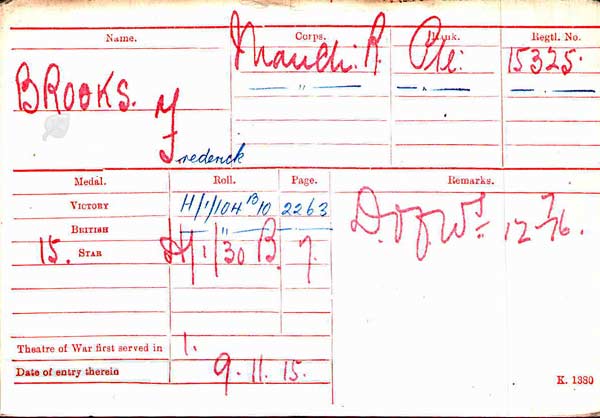 Name. Corps. Rank. Regtl. No.
BROOKS. Manch: R. Pte: 15325.
Frederick " " "
Medal. Roll. Page. Remarks.
VICTORY H/1/104 B10 2263
BRITISH — " —
15. STAR H/1/30 B. 7. D. of Wds 12-7-16.
Theatre of War first served in 1.
Date of entry therein 9.11.15.
K. 1380